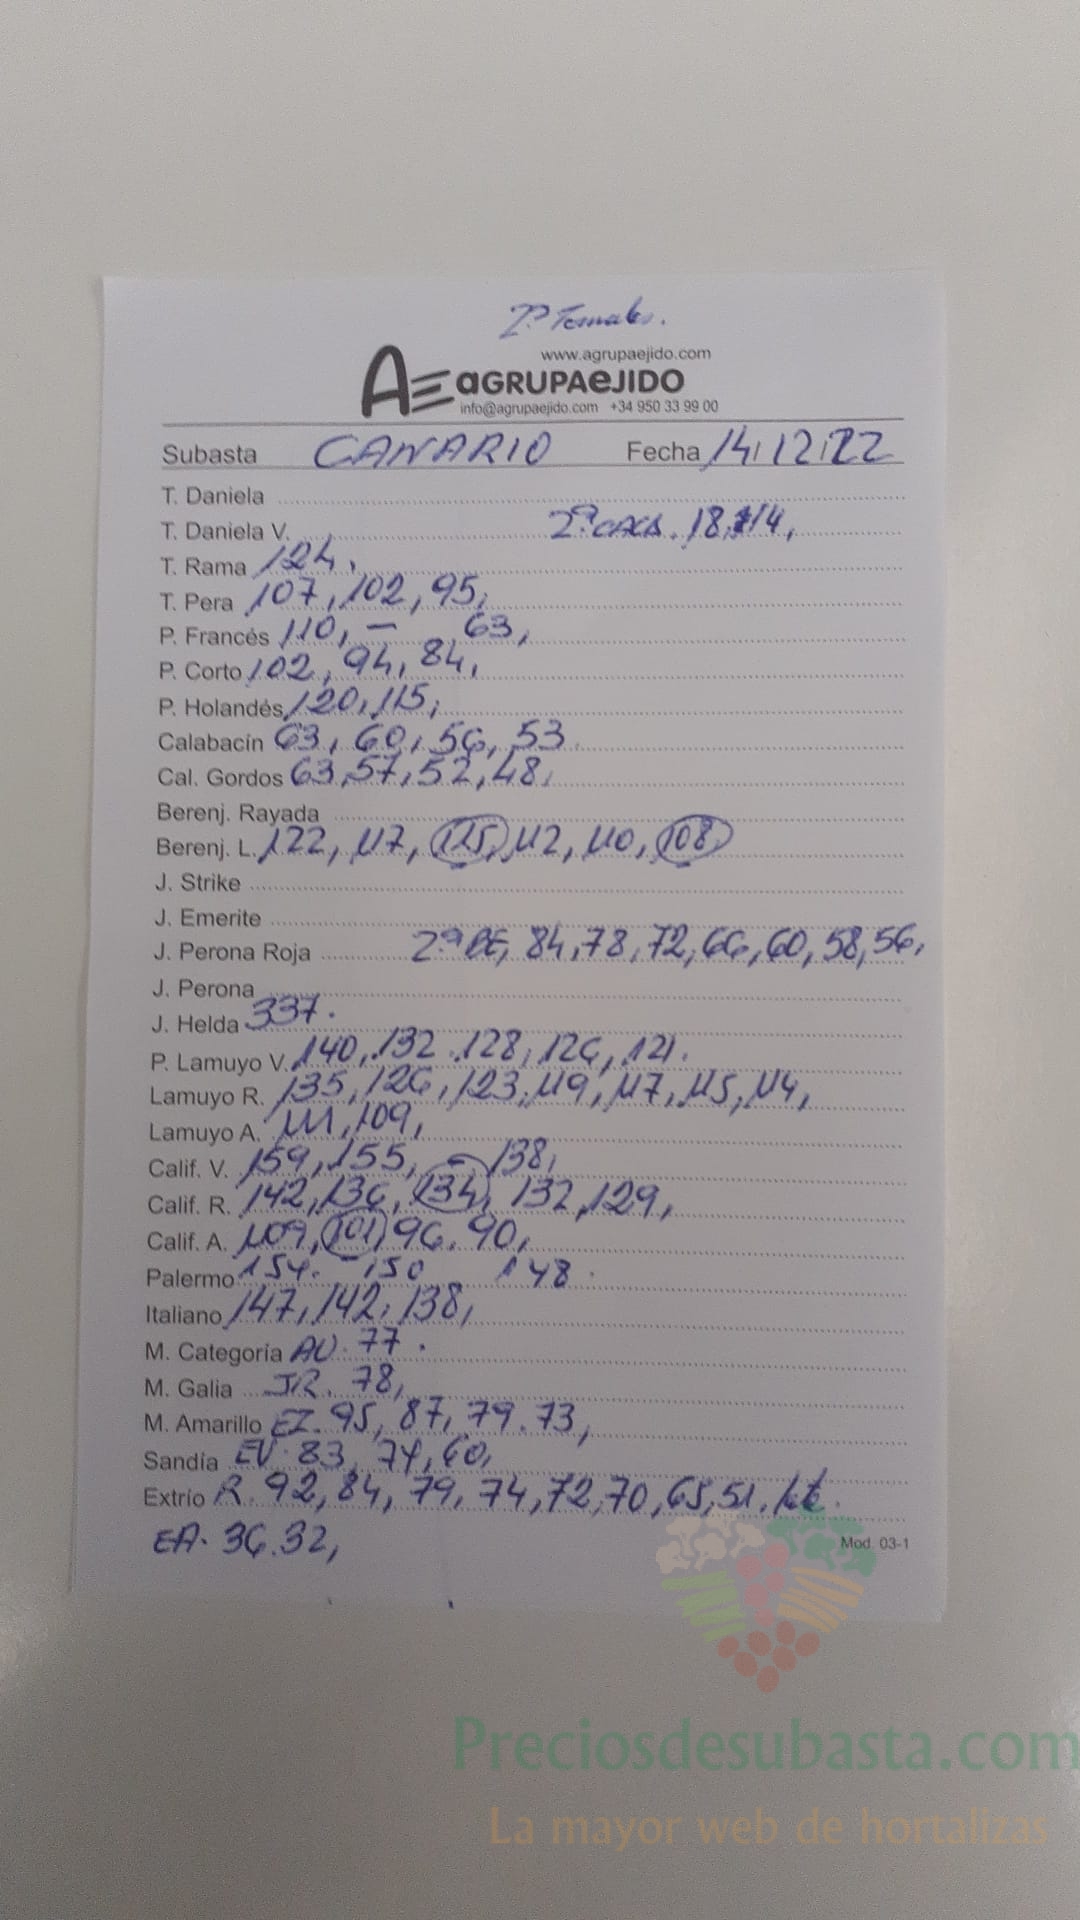 www.agrupaejido.com
AE aGRUPAeJIDO
info@agrupaejido.com +34 950 33 99 00
Subasta CANARIO Fecha 14/12/22
T. Daniela
T. Daniela V. 18, 14,
T. Rama 124,
T. Pera 107, 102, 95,
P. Francés 110, – 63,
P. Corto 102, 94, 84,
P. Holandés 120, 115,
Calabacín 63, 60, 56, 53.
Cal. Gordos 63, 57, 52, 48,
Berenj. Rayada
Berenj. L. 122, 117, 115, 112, 110, 108,
J. Strike
J. Emerite
J. Perona Roja 2ª BE, 84, 78, 72, 66, 60, 58, 56,
J. Perona
J. Helda 337.
P. Lamuyo V. 140, 132. 128, 126, 121.
Lamuyo R. 135, 126, 123, 119, 117, 115, 114,
Lamuyo A. 111, 109,
Calif. V. 159, 155, – 138,
Calif. R. 142, 136, 134, 132, 129,
Calif. A. 109, 101, 96. 90,
Palermo 154. – 150 148.
Italiano 147, 142, 138,
M. Categoría AU. 77.
M. Galia JR. 78,
M. Amarillo EZ. 95, 87, 79. 73,
Sandía EV. 83, 74, 60,
Extrío R. 92, 84, 79, 74, 72, 70, 65, 51,
EA. 36. 32,
Mod. 03-1
Preciosdesubasta.com
La mayor web de hortalizas